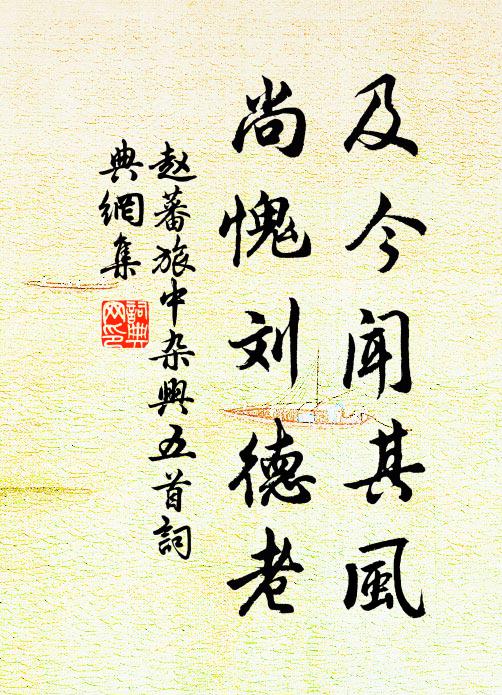 及今闻其風
尚愧刘德老
赵蕃旅中杂興五首詞
典網集
詞典
网印